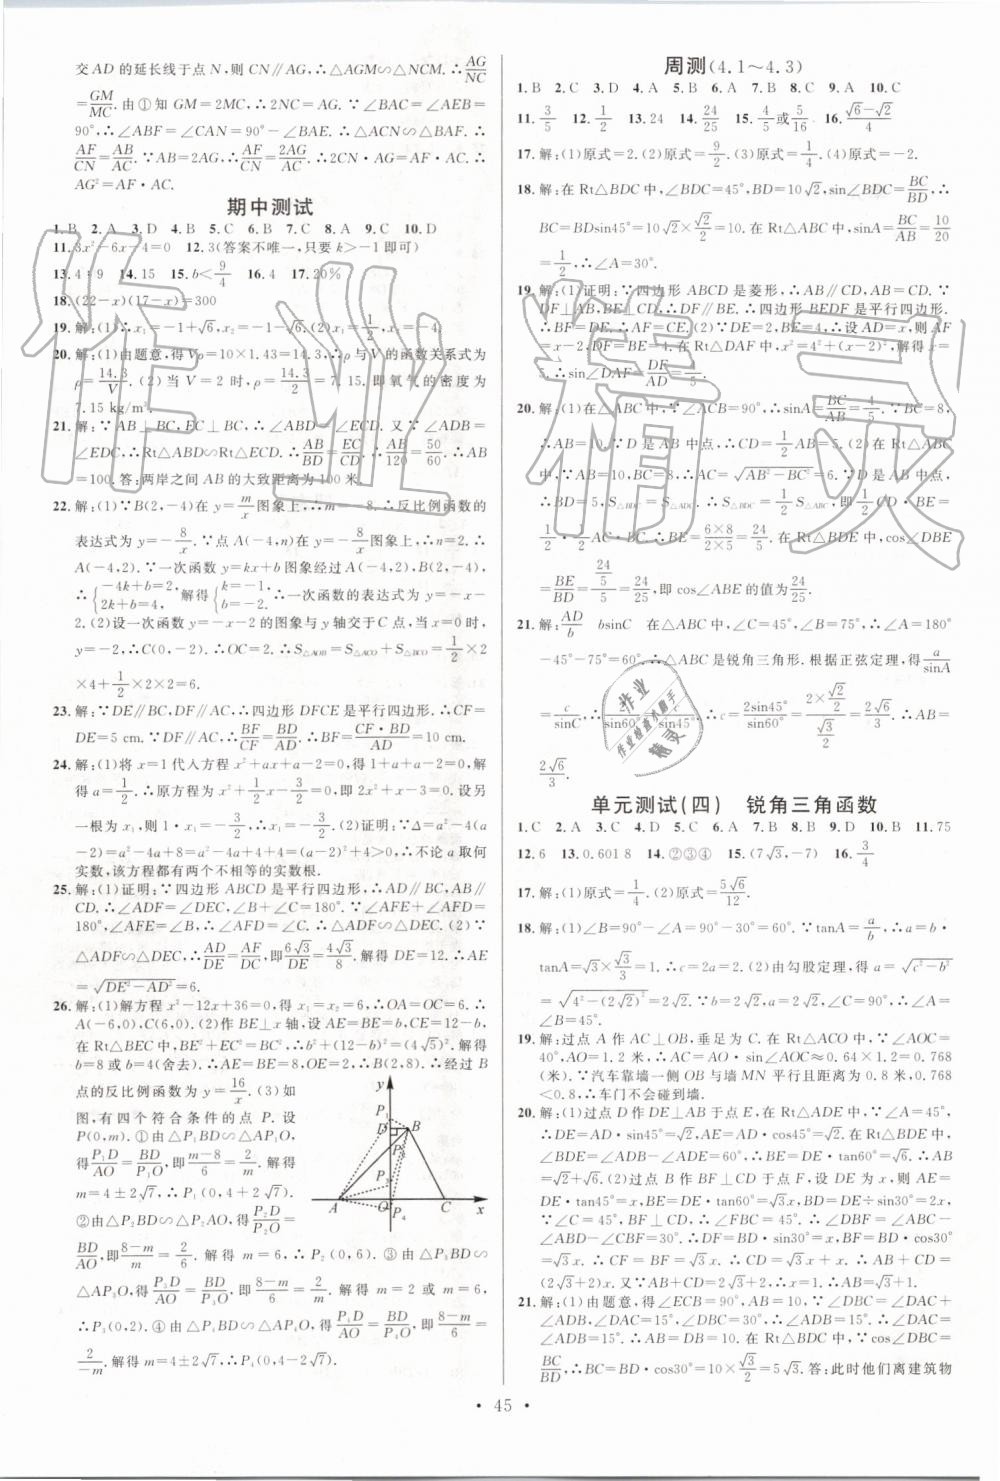 交AD的延长线于点N,则CN∥AG,∴△AGM∽△NCM.∴AG/NC
=GM/MC.由①知GM=2MC,∴2NC=AG.∵∠BAC=∠AEB=
90°,∴∠ABF=∠CAN=90°-∠BAE.∴△ACN∽△BAF.∴
AF/CN=AB/AC.∵AB=2AG,∴AF/CN=2AG/AC.∴2CN·AG=AF·AC.∴
AG²=AF·AC.
期中测试
1.B 2.A 3.D 4.B 5.C 6.B 7.B 8.A 9.C 10.D
11.3x²-6x-4=0 12.3(答案不唯一,只要k>-1即可)
13.4+9 14.15 15.b<9/4 16.4 17.20%
18.(22-x)(17-x)=300
19.解:(1)∴x₁=-1+√6,x₂=-1-√6.(2)x₁=1/2,x₂=-4.
20.解:(1)由题意,得Vρ=10×1.43=14.3,∴ρ与V的函数关系式为
ρ=14.3/V.(2)当V=2时,ρ=14.3/2=7.15.即氧气的密度为
7.15 kg/m³.
21.解:∵AB⊥BC,EC⊥BC,∴∠ABD=∠ECD.又∵∠ADB=
∠EDC,∴Rt△ABD∽Rt△ECD.∴AB/BD=EC/CD.∴AB/120=50/60.∴AB=
100.答:两岸之间AB的大致距离为100米.
22.解:(1)∵B(2,-4)在y=m/x图象上,∴m=-8.∴反比例函数的
表达式为y=-8/x.∵点A(-4,n)在y=-8/x图象上,∴n=2.∴
A(-4,2).∵一次函数y=kx+b图象经过A(-4,2),B(2,-4),
∴{-4k+b=2, 2k+b=-4, 解得{k=-1, b=-2. ∴一次函数的表达式为y=-x-
2.(2)设一次函数y=-x-2的图象与y轴交于C点,当x=0时,
y=-2,∴C(0,-2).∴OC=2.∴S△AOB=S△ACO+S△BCO=1/2×2
×4+1/2×2×2=6.
23.解:∵DE∥BC,DF∥AC,∴四边形DFCE是平行四边形.∴CF=
DE=5 cm.∵DF∥AC,∴BF/CF=BD/AD.∴BF=CF·BD/AD=10 cm.
24.解:(1)将x=1代入方程x²+ax+a-2=0,得1+a+a-2=0.解
得a=1/2.∴原方程为x²+1/2x-3/2=0.即2x²+x-3=0.设另
一根为x₁,则1·x₁=-3/2.∴x₁=-3/2.(2)证明:∵Δ=a²-4(a-
2)=a²-4a+8=a²-4a+4+4=(a-2)²+4>0,∴不论a取何
实数,该方程都有两个不相等的实数根.
25.解:(1)证明:∵四边形ABCD是平行四边形,∴AD∥BC,AB∥
CD.∴∠ADF=∠DEC,∠B+∠C=180°.∵∠AFE+∠AFD=
180°,∠AFE=∠B,∴∠AFD=∠C.∴△ADF∽△DEC.(2)∵
△ADF∽△DEC,∴AD/DE=AF/DC,即6√3/DE=4√3/8.解得DE=12.∴AE
=√(DE²-AD²)=6.
26.解:(1)解方程x²-12x+36=0,得x₁=x₂=6.∴OA=OC=6.∴
A(-6,0),C(6,0).(2)作BE⊥x轴,设AE=BE=b,CE=12-b,
在Rt△BEC中,BE²+EC²=BC²,∴b²+(12-b)²=(4√5)².解得
b=8或b=4(舍去).∴AE=BE=8,OE=2.∴B(2,8).∴经过B
点的反比例函数为y=16/x.(3)如
图,有四个符合条件的点P.设
P(0,m).①由△P₁BD∽△AP₁O,
得P₁D/AO=BD/P₁O,即m-8/6=2/m.解得
m=4±2√7,∴P₁(0,4+2√7).
②由△P₂BD∽△AP₂O,得P₂D/P₂O=
BD/AO,即8-m/m=2/6.解得m=6,∴P₂(0,6).③由△P₃BD∽
△AP₃O,得P₃D/AO=BD/P₃O,即8-m/6=2/m.解得m=2或m=6,
∴P₃(0,2).④由△P₄BD∽△AP₄O,得P₄D/AO=BD/P₄O,即8-m/6=
2/-m.解得m=4±2√7,∴P₄(0,4-2√7).
y
P₁
D
B
P₂
P₃
A
O
P₄
C
x
周测(4.1~4.3)
1.B 2.C 3.D 4.A 5.B 6.A 7.B 8.C 9.A 10.C
11.3/5 12.1/2 13.24 14.24/25 15.4/5或5/16 16.√6-√2/4
17.解:(1)原式=2.(2)原式=9/2.(3)原式=1/4.(4)原式=-2.
18.解:在Rt△BDC中,∠BDC=45°,BD=10√2,sin∠BDC=BC/BD,∴
BC=BDsin45°=10√2×√2/2=10.在Rt△ABC中,sinA=BC/AB=10/20
=1/2,∴∠A=30°.
19.解:(1)证明:∵四边形ABCD是菱形,∴AB∥CD,AB=CD.∵
DF⊥AB,BE⊥CD,∴DF∥BE.∴四边形BEDF是平行四边形.
∴BF=DE.∴AF=CE.(2)∵DE=2,BE=4,∴设AD=x,则AF
=x-2,DF=BE=4.在Rt△DAF中,x²=4²+(x-2)².解得x=
5.∴sin∠DAF=DF/AD=4/5.
20.解:(1)在△ABC中,∵∠ACB=90°,∴sinA=BC/AB=4/5.∵BC=8,
∴AB=10.∵D是AB中点,∴CD=1/2AB=5.(2)在Rt△ABC
中,∵AB=10,BC=8,∴AC=√(AB²-BC²)=6.∵D是AB中点,
∴BD=5,S△BDC=S△ADC.∴S△BDC=1/2S△ABC,即1/2CD·BE=
1/2·1/2AC·BC.∴BE=6×8/2×5=24/5.在Rt△BDE中,cos∠DBE
=BE/BD=24/5/5=24/25,即cos∠ABE的值为24/25.
21.解:AD/b bsinC 在△ABC中,∠C=45°,∠B=75°,∴∠A=180°
-45°-75°=60°.∴△ABC是锐角三角形.根据正弦定理,得a/sinA
=c/sinC.∴2/sin60°=c/sin45°.∴c=2sin45°/sin60°=2×√2/2/√3/2=2√6/3.∴AB=
2√6/3.
单元测试(四) 锐角三角函数
1.C 2.A 3.C 4.D 5.C 6.A 7.B 8.B 9.D 10.B 11.75
12.6 13.0.601 8 14.②③④ 15.(7√3,-7) 16.3/4
17.解:(1)原式=1/4.(2)原式=5√6/12.
18.解:(1)∠B=90°-∠A=90°-30°=60°.∵tanA=a/b,∴a=b·
tanA=√3×√3/3=1.∴c=2a=2.(2)由勾股定理,得a=√(c²-b²)
=√(4²-(2√2)²)=2√2.∵b=2√2,a=2√2,∠C=90°,∴∠A
=∠B=45°.
19.解:过点A作AC⊥OB,垂足为C.在Rt△ACO中,∵∠AOC=
40°,AO=1.2米,∴AC=AO·sin∠AOC≈0.64×1.2=0.768
(米).∵汽车靠墙一侧OB与墙MN平行且距离为0.8米,0.768
<0.8,∴车门不会碰到墙.
20.解:(1)过点D作DE⊥AB于点E,在Rt△ADE中,∵∠A=45°,
∴DE=AD·sin45°=√2,AE=AD·cos45°=√2.在Rt△BDE中,
∠BDE=∠ADB-∠ADE=60°,∴BE=DE·tan60°=√6.∴AB
=√2+√6.(2)过点B作BF⊥CD于点F,设DE为x,则AE=
DE·tan45°=x,BE=DE·tan60°=√3x,BD=DE÷sin30°=2x,
∵∠C=45°,BF⊥CD,∴∠FBC=45°,∴∠DBF=∠ABC-
∠ABD-∠CBF=30°.∴DF=BD·sin30°=x,BF=BD·cos30°
=√3x.∴CF=BF=√3x.∴CD=DF+CF=x+√3x.∴AB+CD=
(2+2√3)x.又∵AB+CD=2√3+2,∴x=1.∴AB=√3+1.
21.解:(1)由题意,得∠ECB=90°,AB=10,∵∠DBC=∠DAC+
∠ADB=30°,∠DAC=15°,∴∠ADB=∠DBC-∠DAC=
∠DAB=15°.∴BD=AB=10.在Rt△BDC中,∵cos∠DBC=
BC/BD,∴BC=BD·cos30°=10×√3/2=5√3.答:此时他们离建筑物
作业精灵
作业
作业检查小助手
精灵
• 45 •